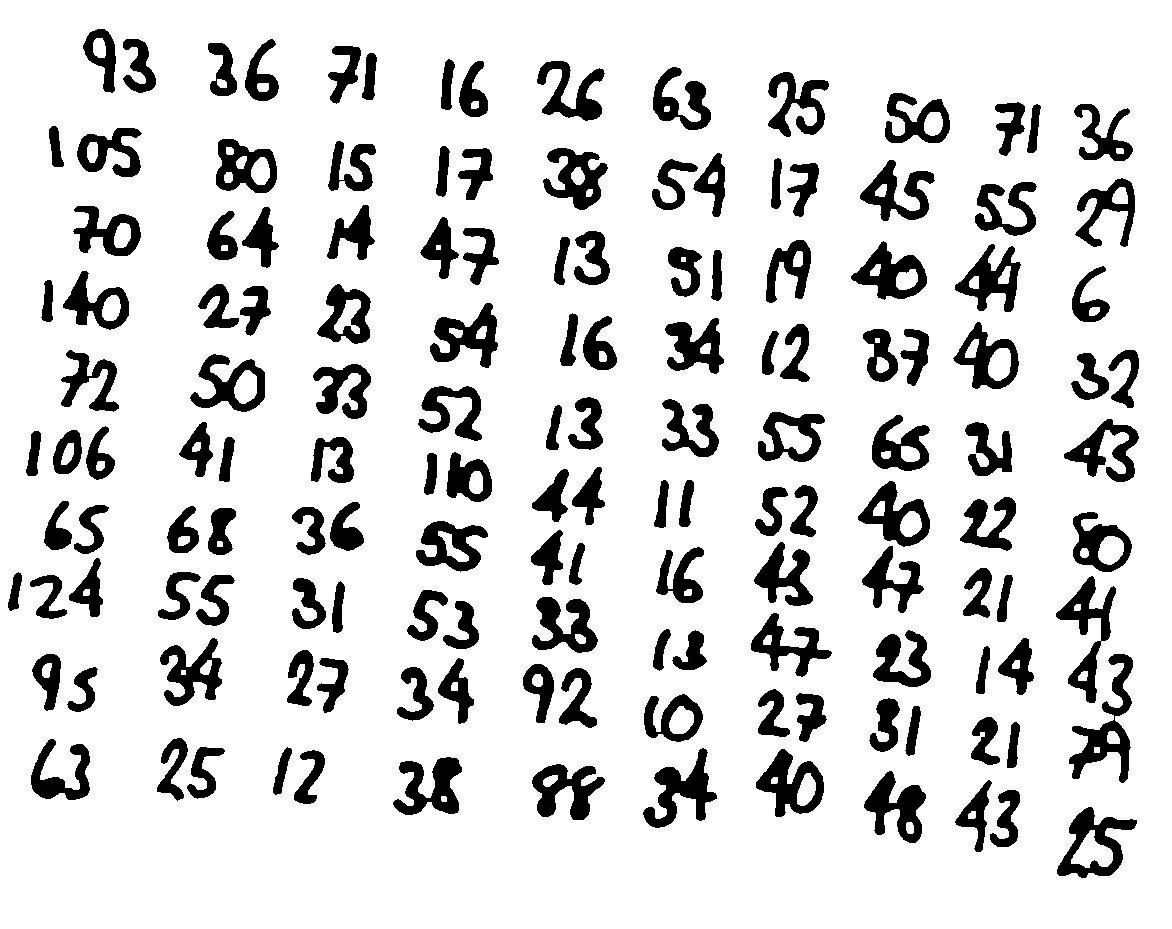 93 36 71 16 26 63 25 50 71 36
105 80 15 17 38 54 17 45 55 29
70 64 14 47 13 51 19 40 44 6
140 27 23 54 16 34 12 37 40 32
72 50 33 52 13 33 55 65 31 43
106 41 13 110 44 11 52 40 22 80
65 68 36 55 41 16 43 47 21 41
124 55 31 53 33 13 47 23 14 43
95 34 27 34 92 10 27 31 21 79
63 25 12 38 88 34 40 48 43 25